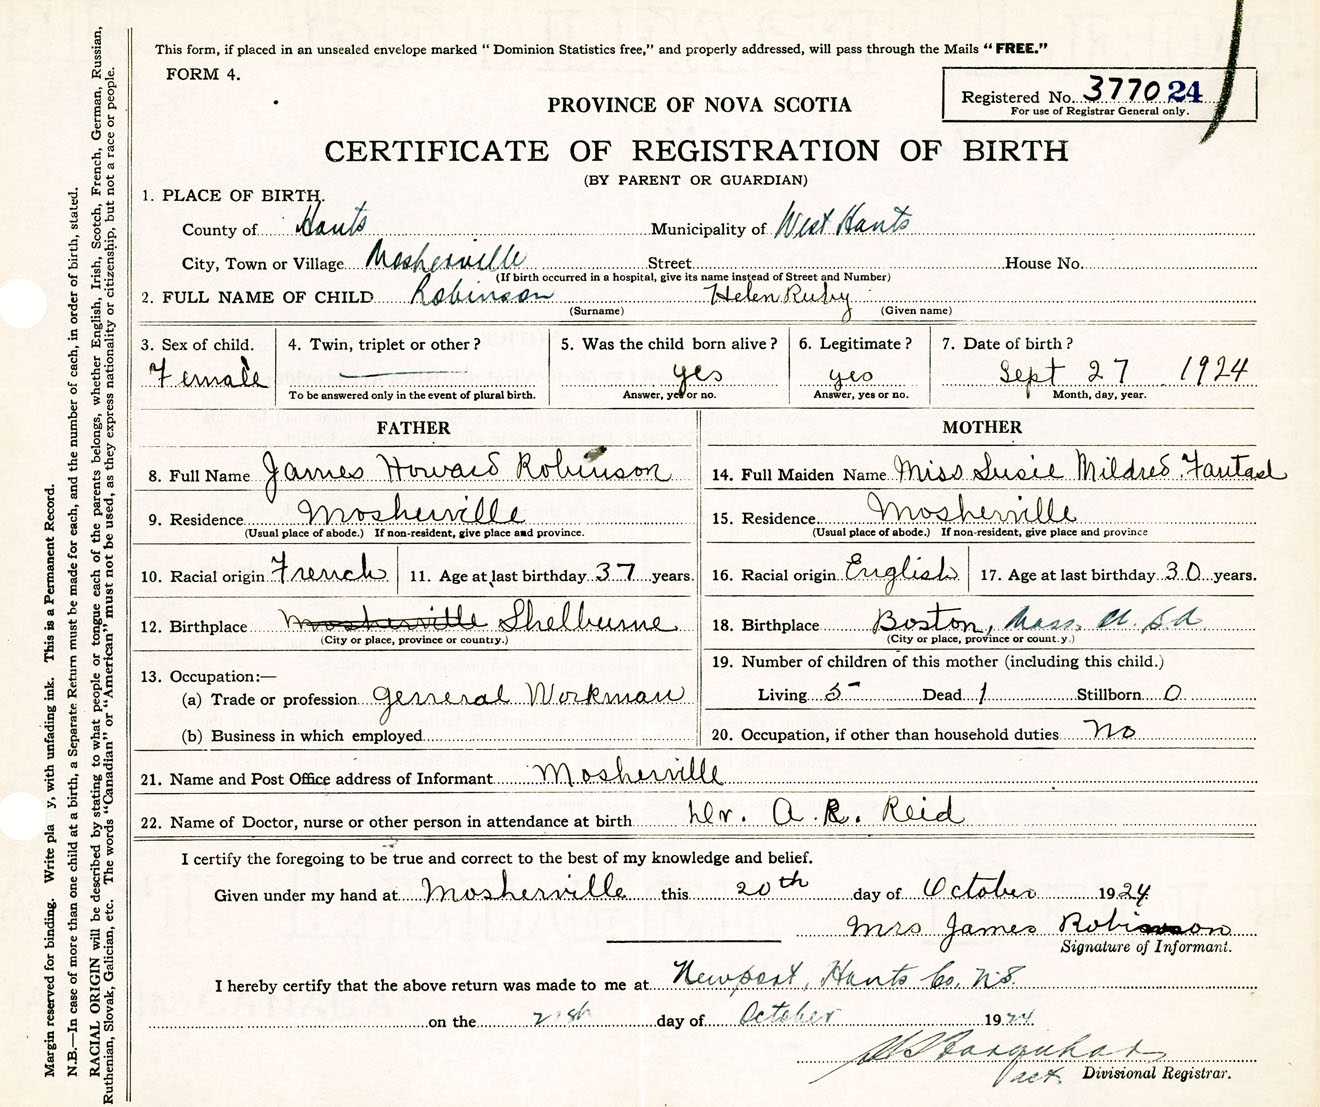 This form, if placed in an unsealed envelope marked "Dominion Statistics free," and properly addressed, will pass through the Mails "FREE."
FORM 4.
Registered No. 3770 24
For use of Registrar General only.
PROVINCE OF NOVA SCOTIA
CERTIFICATE OF REGISTRATION OF BIRTH
(BY PARENT OR GUARDIAN)
1. PLACE OF BIRTH.
County of Hants Municipality of West Hants
City, Town or Village Mosherville Street House No.
(If birth occurred in a hospital, give its name instead of Street and Number)
2. FULL NAME OF CHILD Robinson Helen Ruby
(Surname) (Given name)
3. Sex of child. 4. Twin, triplet or other? 5. Was the child born alive? 6. Legitimate? 7. Date of birth?
Female yes yes Sept 27 1924
To be answered only in the event of plural birth. Answer, yes or no. Answer, yes or no. Month, day, year.
FATHER MOTHER
8. Full Name James Howard Robinson 14. Full Maiden Name Miss Susie Mildred
9. Residence Mosherville 15. Residence Mosherville
(Usual place of abode.) If non-resident, give place and province. (Usual place of abode.) If non-resident, give place and province
10. Racial origin French 11. Age at last birthday 37 years. 16. Racial origin English 17. Age at last birthday 30 years.
12. Birthplace Mosherville Shelburne 18. Birthplace Boston, Mass. U.S.A
(City or place, province or country.) (City or place, province or country.)
19. Number of children of this mother (including this child.)
13. Occupation:—
(a) Trade or profession general Workman Living 5 Dead 1 Stillborn 0
(b) Business in which employed 20. Occupation, if other than household duties No
21. Name and Post Office address of Informant Mosherville
22. Name of Doctor, nurse or other person in attendance at birth Dr. A. R. Reid
I certify the foregoing to be true and correct to the best of my knowledge and belief.
Given under my hand at Mosherville this 20th day of October 1924
Mrs James Robinson
Signature of Informant.
I hereby certify that the above return was made to me at Newport, Hants Co, N.S.
on the day of October 1924
Divisional Registrar.
Margin reserved for binding. Write pla y, with unfading ink. This is a Permanent Record.
N.B.—In case of more than one child at a birth, a Separate Return must be made for each, and the number of each, in order of birth, stated.
RACIAL ORIGIN will be described by stating to what people or tongue each of the parents belongs, whether English, Irish, Scotch, French, German, Russian,
Ruthenian, Slovak, Galician, etc. The words "Canadian" or "American" must not be used, as they express nationality or citizenship, but not a race or people.